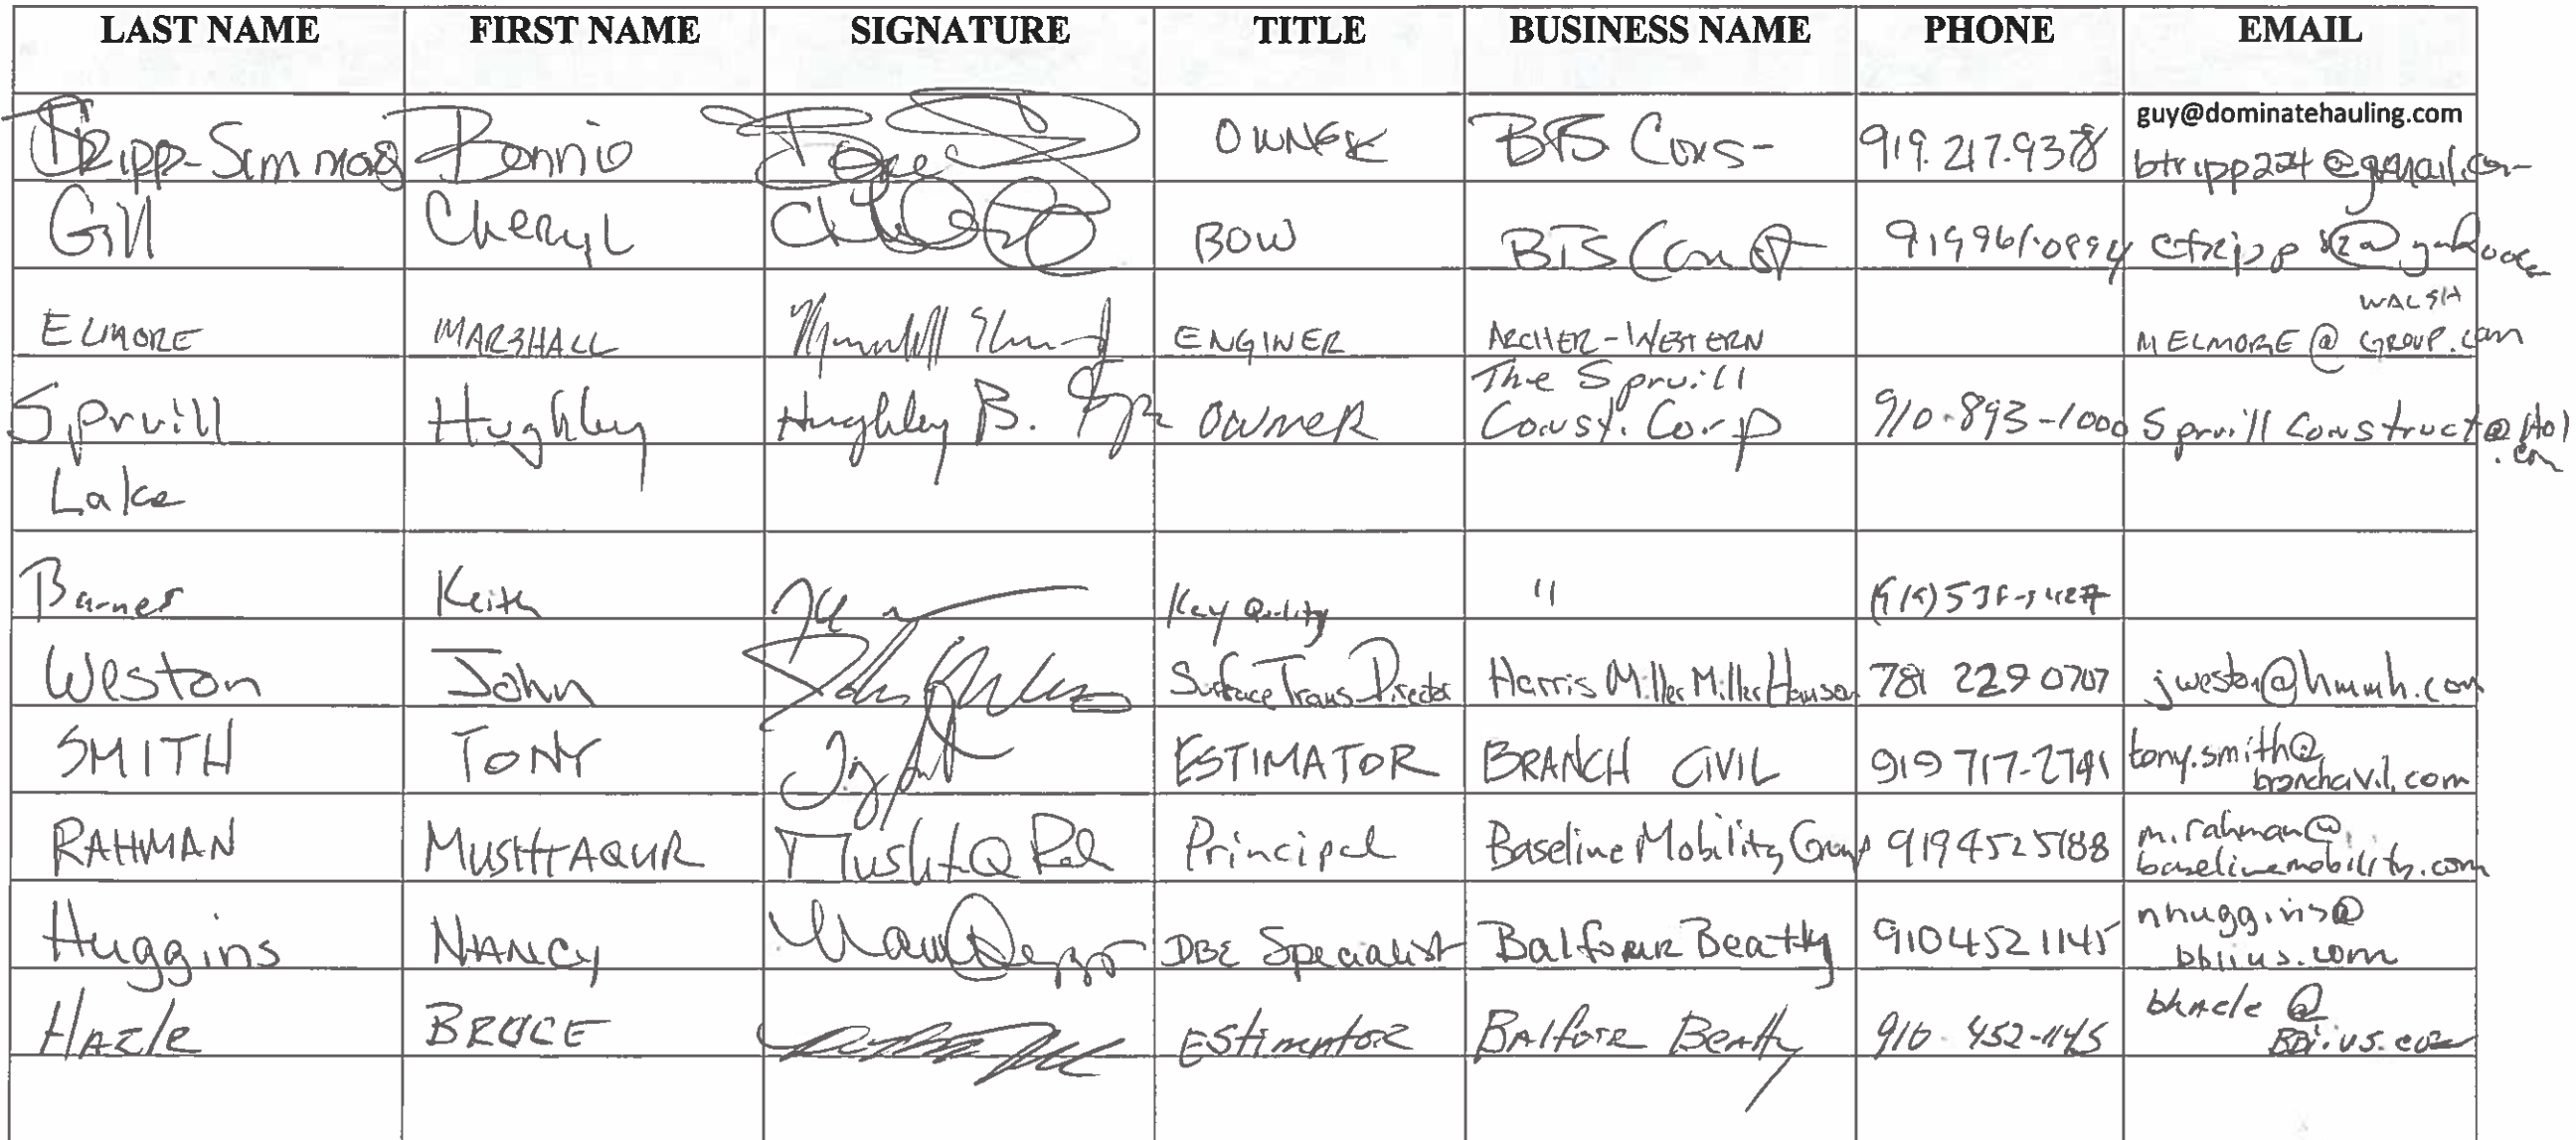 LAST NAME FIRST NAME SIGNATURE TITLE BUSINESS NAME PHONE EMAIL
guy@dominatehauling.com
Tripp-Simmons Bonnie OWNER BTS Cons- 919.217.9378 btripp224@gmail.com
Gill Cheryl BOW BTS Const
ELMORE MARSHALL ENGINER ARCHER-WESTERN MELMORE@ WALSH GROUP.com
Spruill Hughley Hughley B. OWNER The Spruill Const. Corp 910-893-1000 Spruill Construct@Aol.com
Lake
Barnes Keith Key Quality "
Weston John Surface Trans Director Harris Miller Miller Hanson 781 229 0707 jweston@hmmh.com
SMITH TONY ESTIMATOR BRANCH CIVIL 919 717-2741 tony.smith@ branchcivil.com
RAHMAN MUSHTAQUR Mushtaq Principal Baseline Mobility Group 919 452 5188 m.rahman@ baselinemobility.com
Huggins NANCY DBE Specialist Balfour Beatty 910 452 1145 nhuggins@ bbiius.com
HAzle BRUCE EStimator BAlfour BeAtty 910-452-1145